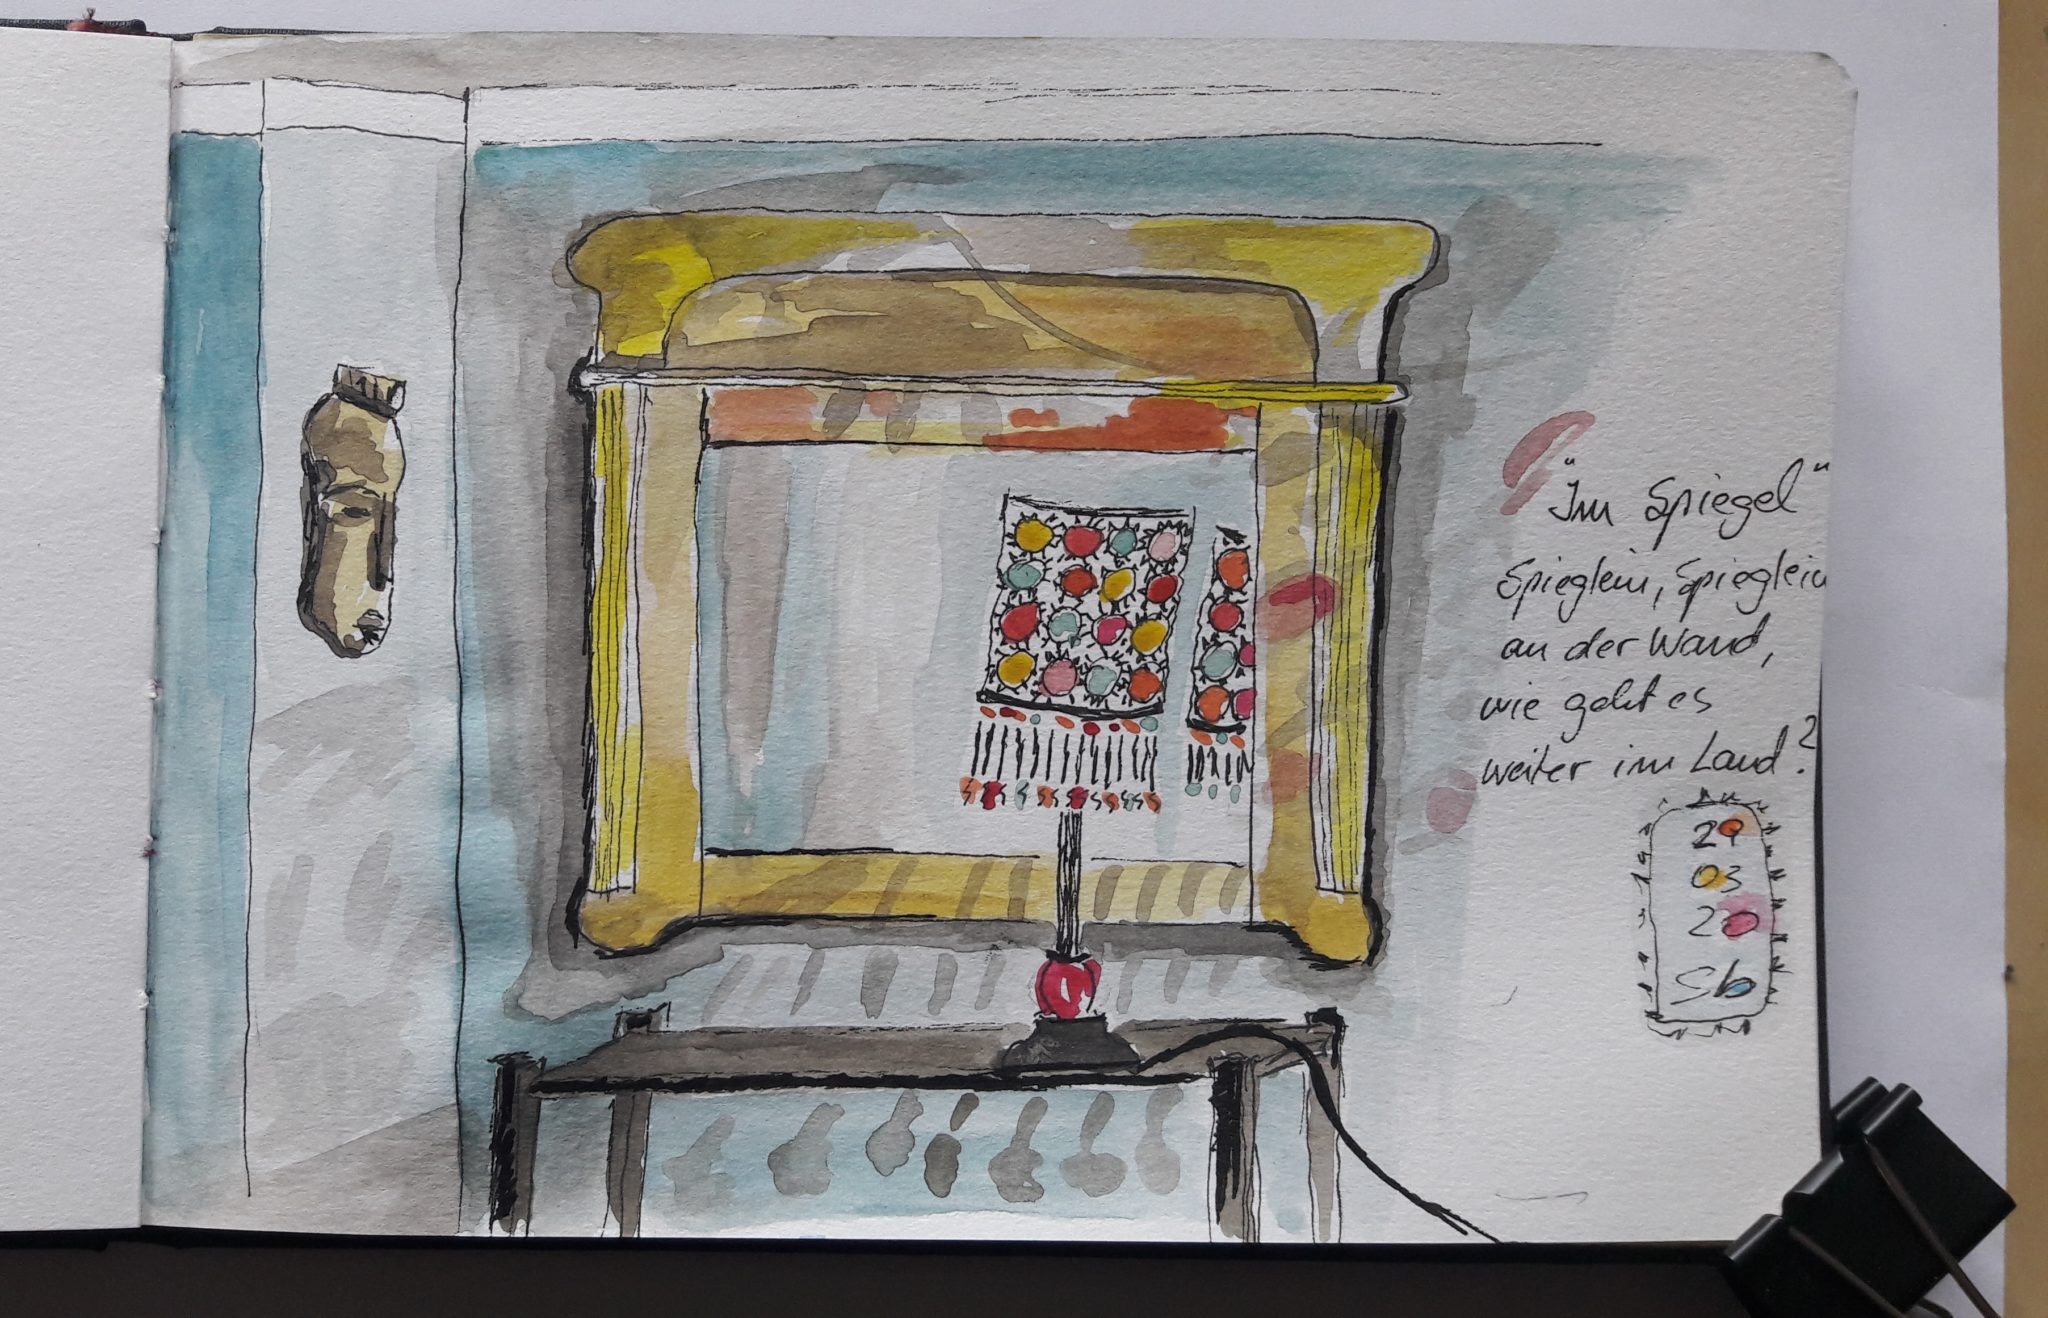 "Im Spiegel"
Spieglein, Spieglein
an der Wand,
wie geht es
weiter im Land?
29
03
20
Sb